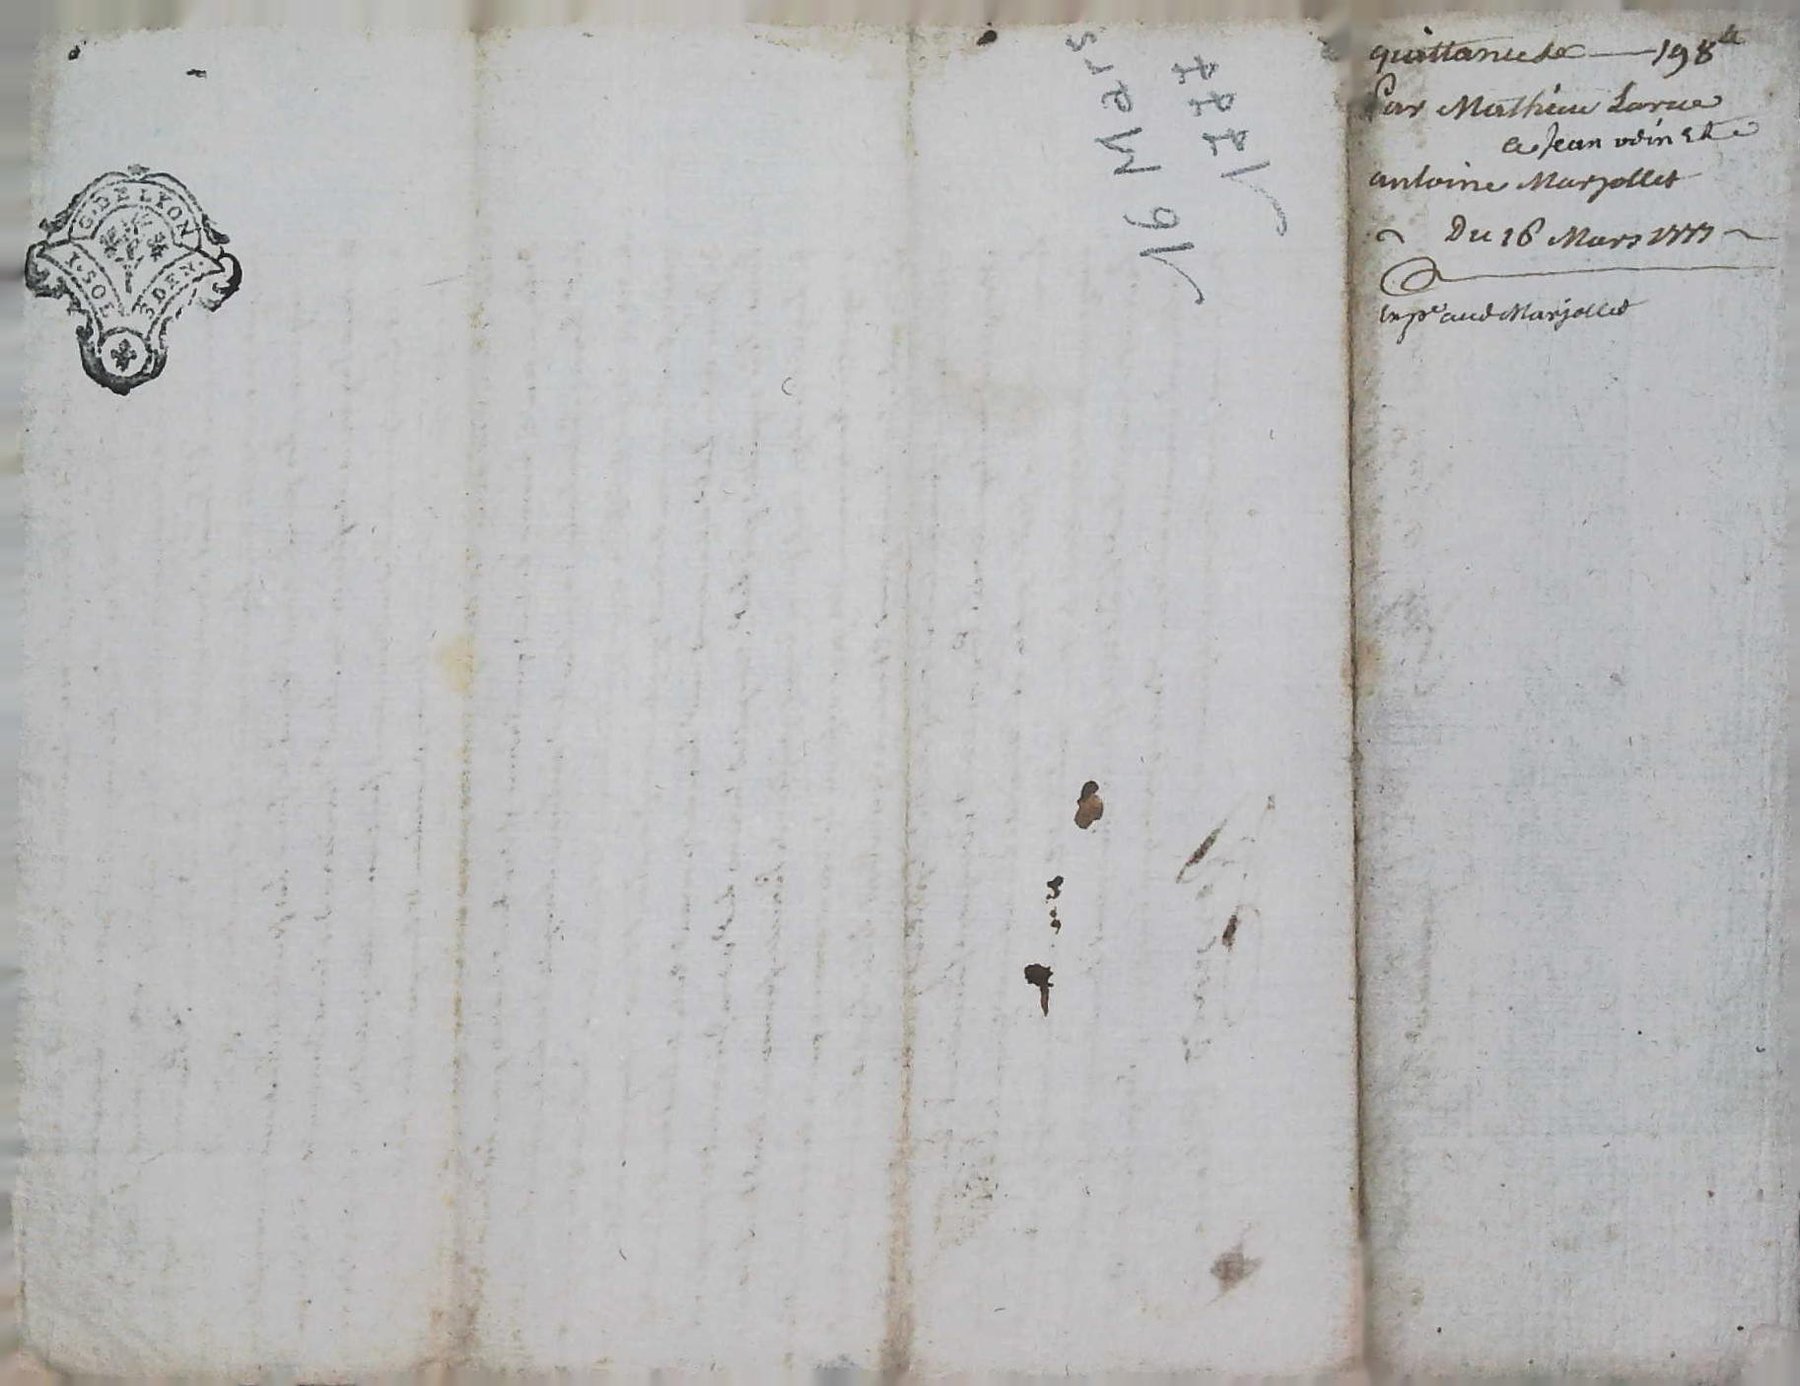 G. DE LYON
1. SOL 4 DEN.
16 Mars
1777
quittance de — 198 tt
Par Mathieu Larue
a Jean odin et
antoine Marjollet
Du 16 Mars 1777
Marjollet